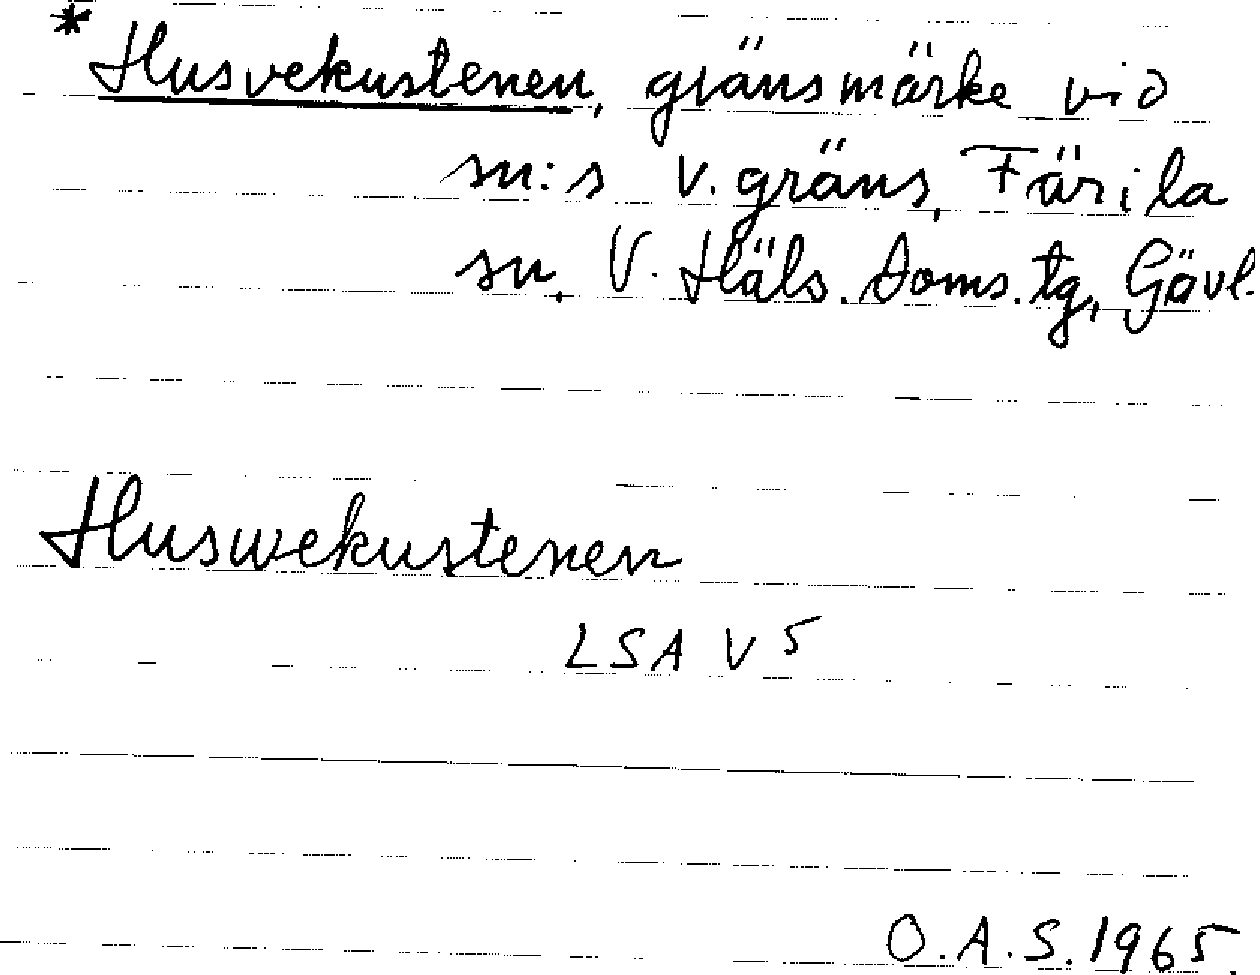 * Husvekustenen, gränsmärke vid
sn:s v. gräns, Färila
sn, V. Häls. doms. tg, Gävl.
Huswekustenen
LSA V 5
O.A.S. 1965.